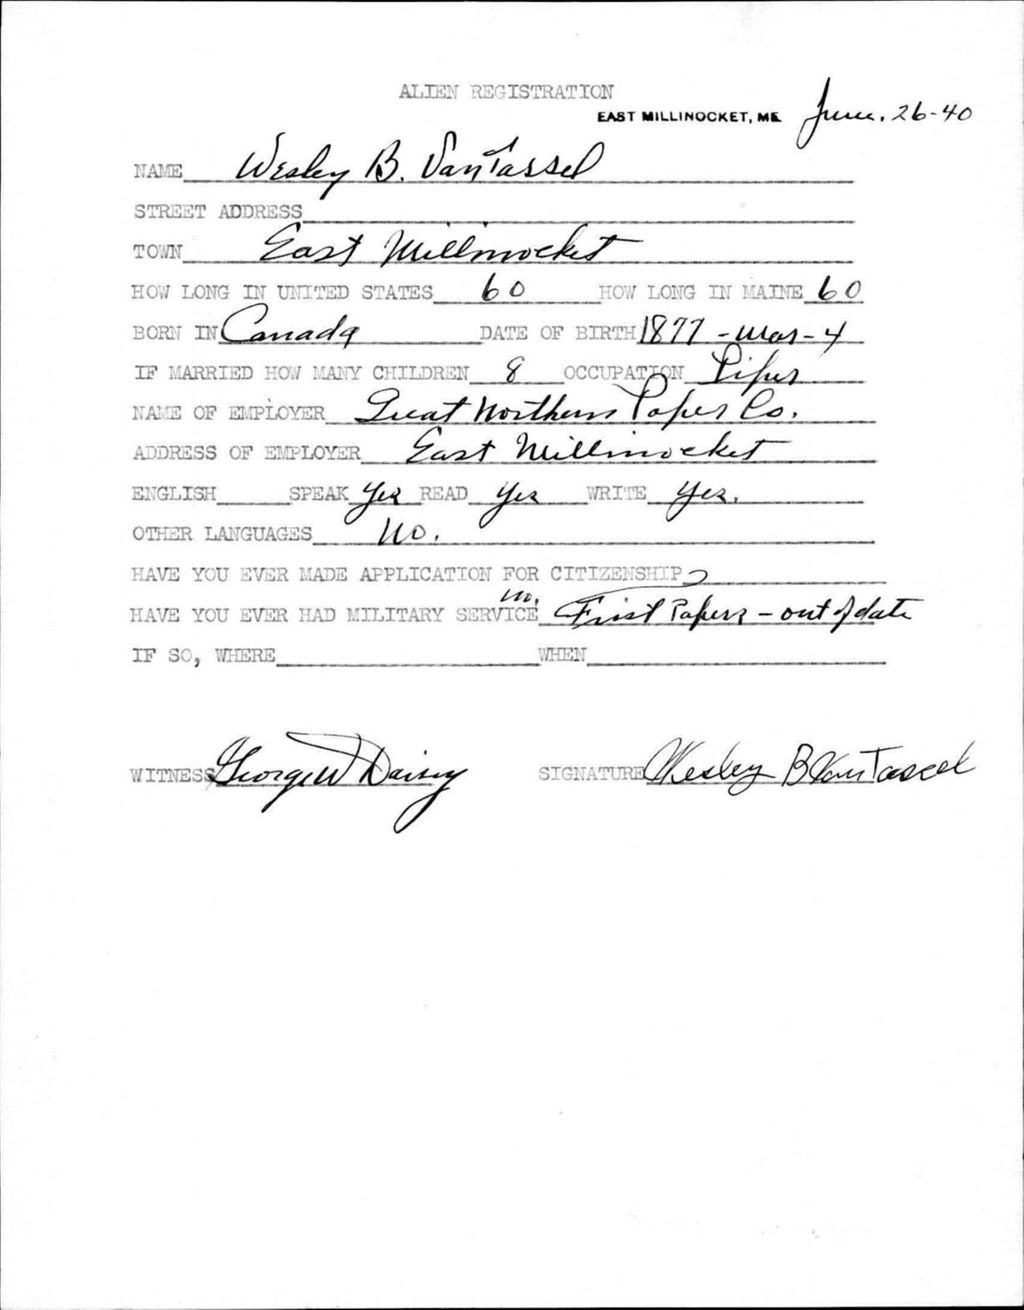 ALIEN REGISTRATION
EAST MILLINOCKET, ME. June. 26-40
NAME Wesley B. VanTassel
STREET ADDRESS
TOWN East Millinocket
HOW LONG IN UNITED STATES 60 HOW LONG IN MAINE 60
BORN IN Canada DATE OF BIRTH 1877 - Mar - 4
IF MARRIED HOW MANY CHILDREN 8 OCCUPATION Piper
NAME OF EMPLOYER Great Northern Paper Co.
ADDRESS OF EMPLOYER East Millinocket
ENGLISH SPEAK Yes READ Yes WRITE Yes.
OTHER LANGUAGES No.
HAVE YOU EVER MADE APPLICATION FOR CITIZENSHIP
HAVE YOU EVER HAD MILITARY SERVICE no. First Papers - out of date
IF SO, WHERE WHEN
WITNESS George W Daisey SIGNATURE Wesley B VanTassel